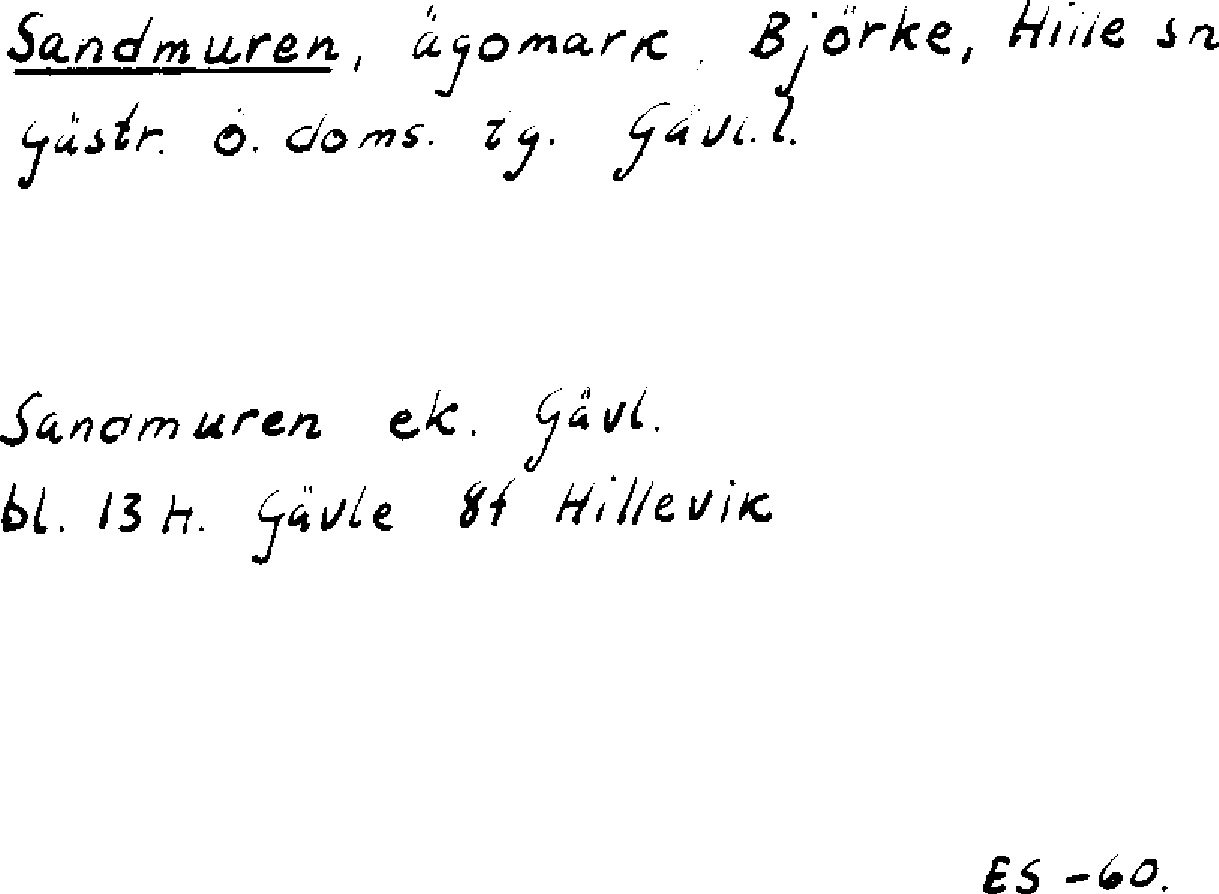 Sandmuren, ägomark, Björke, Hille sn
Gästr. ö. doms. tg. Gävl.l.
Sandmuren ek. Gävl.
bl. 13 H. Gävle 8f Hillevik
ES -60.